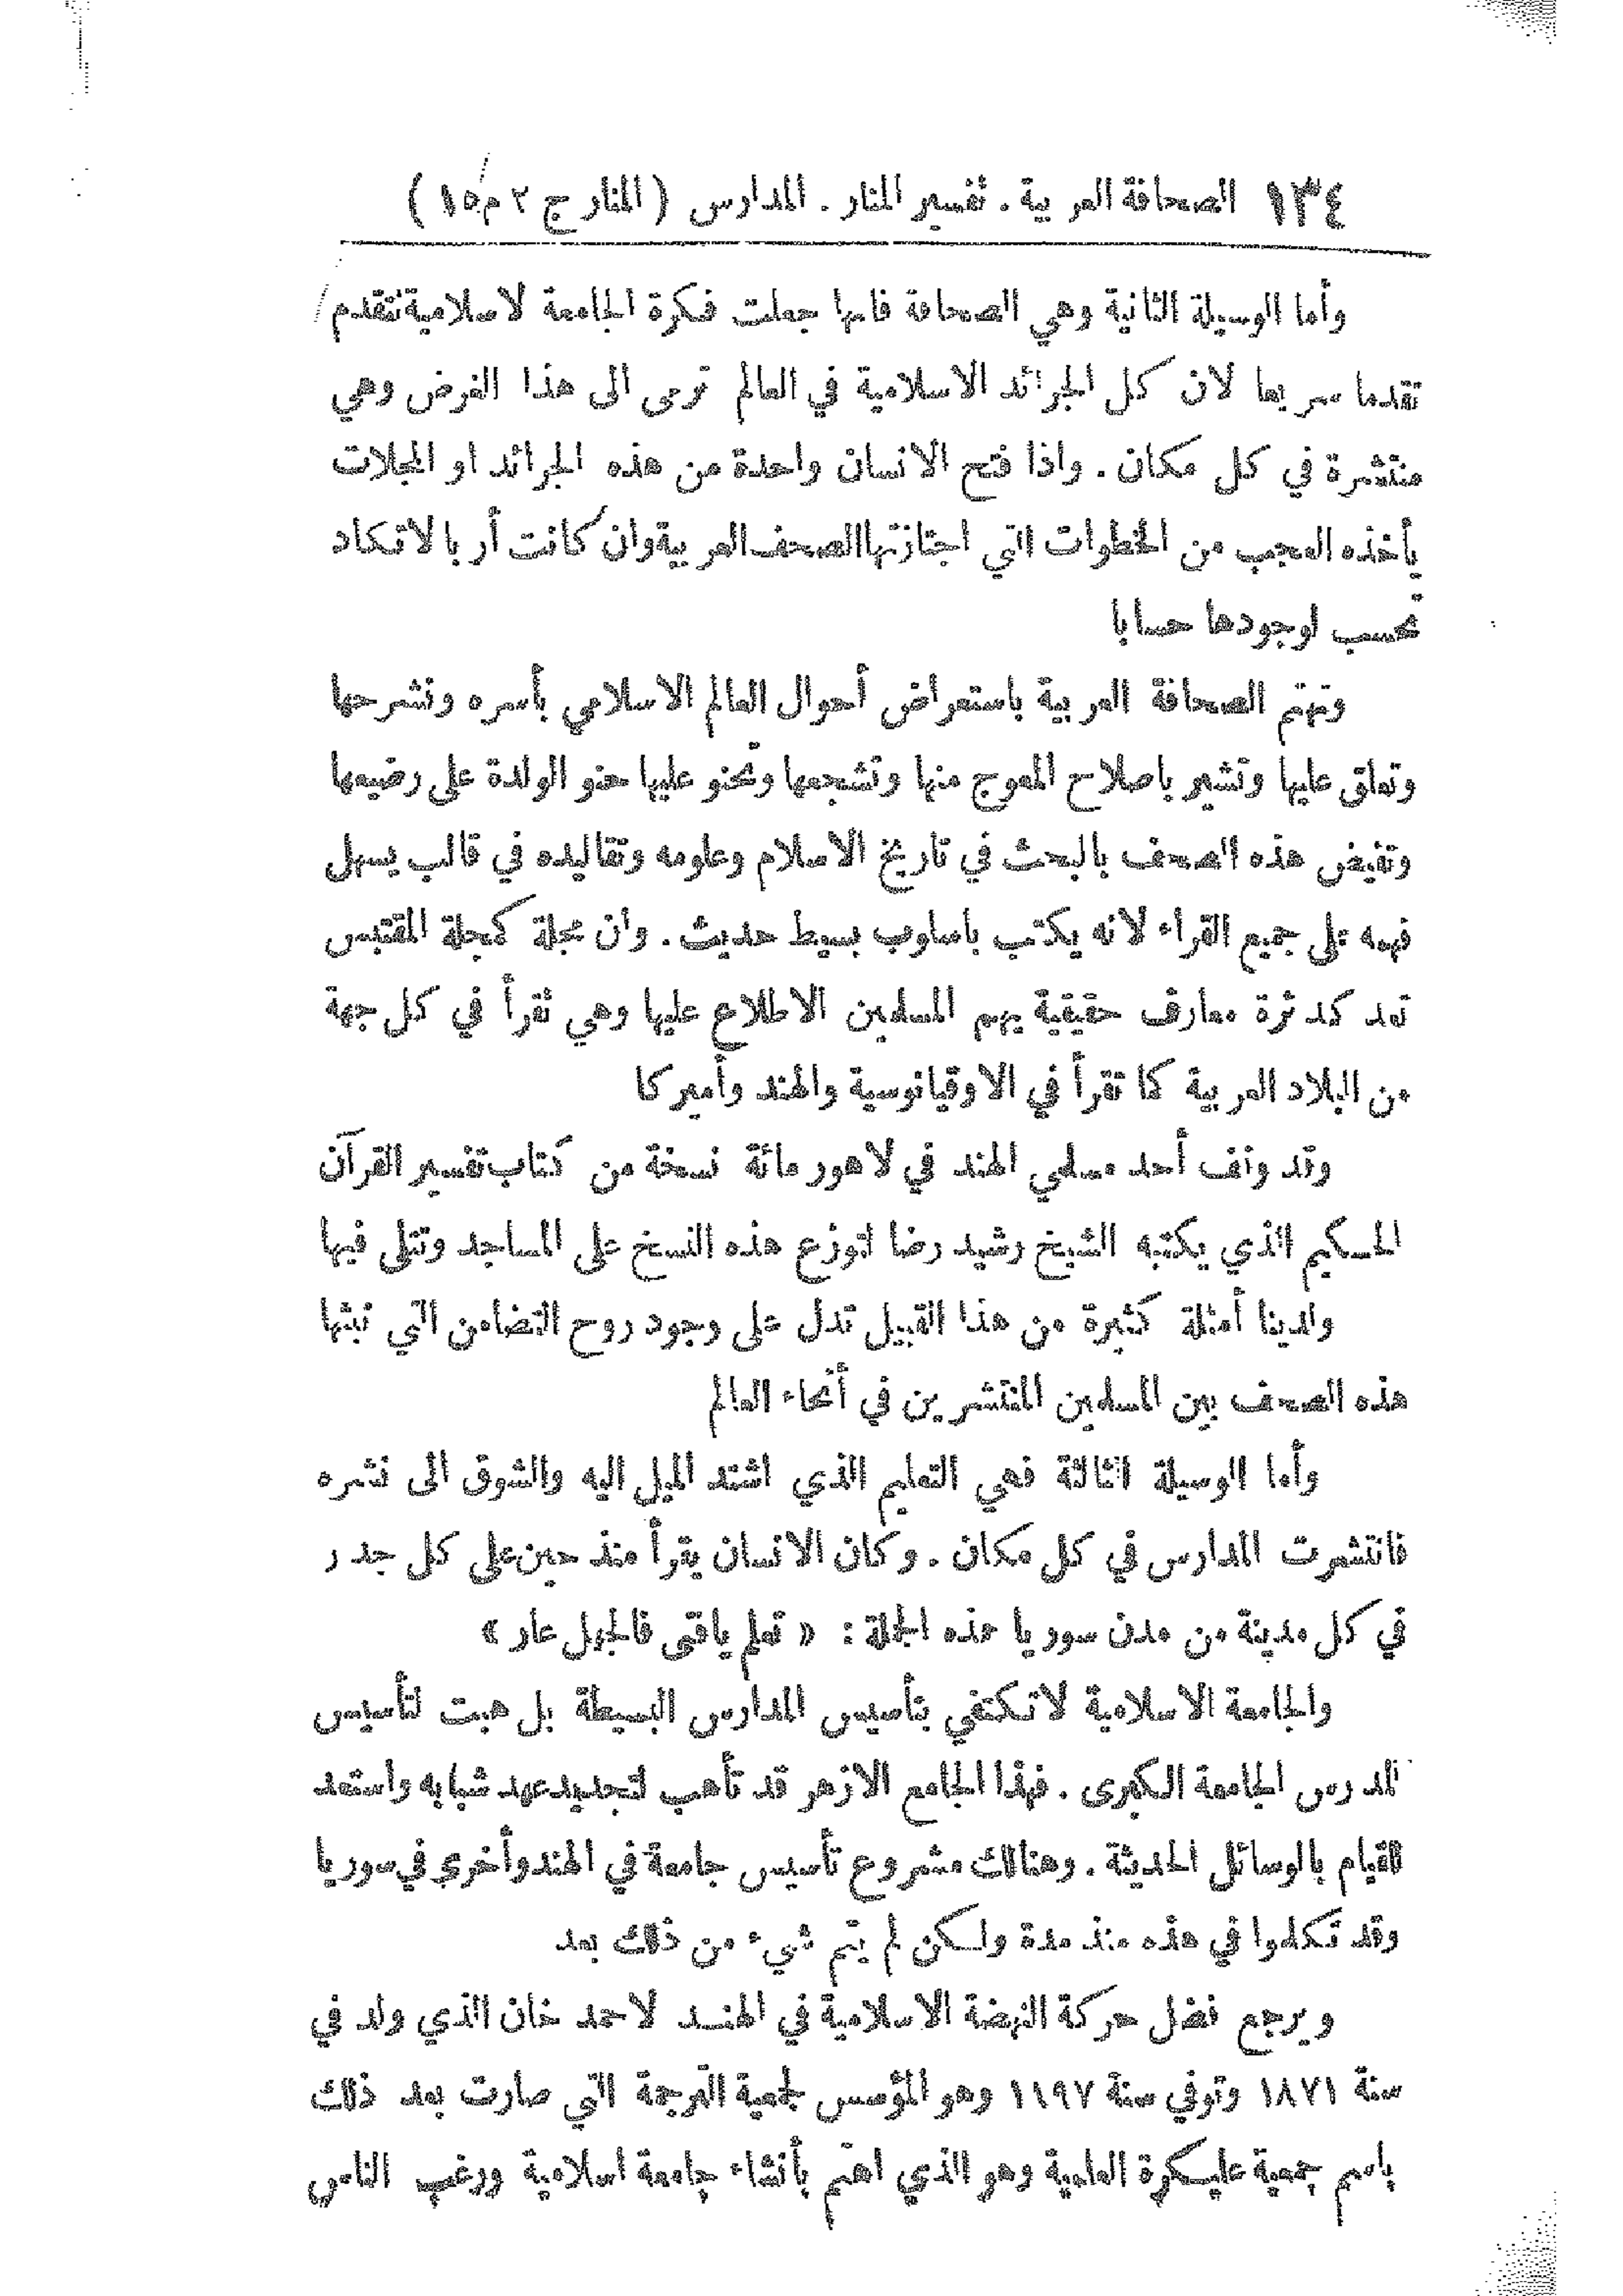 ١٣٤ الصحافة العربية . تفسير المنار . المدارس ( المنار ج ٢ م ١٥ )
وأما الوسيلة الثانية وهي الصحافة فانها جعلت فكرة الجامعة لاسلامية تتقدم
تقدما سريعا لان كل الجرائد الاسلامية في العالم ترمى الى هذا الغرض وهي
منتشرة في كل مكان . واذا فتح الانسان واحدة من هذه الجرائد او المجلات
يأخذه العجب من الخطوات التي اجتازتها الصحف العربية وان كانت أربا لا تكاد
تحسب لوجودها حسابا
وتهتم الصحافة العربية باستعراض أحوال العالم الاسلامي بأسره وتشرحها
وتعلق عليها وتشير باصلاح المعوج منها وتشجعها وتحنو عليها حنو الولدة على رضيعها
وتفيض هذه الصحف بالبحث في تاريخ الاسلام وعلومه وتقاليده في قالب يسهل
فهمه على جميع القراء لانه يكتب باسلوب بسيط حديث . وان مجلة كمجلة المقتبس
تعد كدثرة معارف حقيقية يهم المسلمين الاطلاع عليها وهي تقرأ في كل جهة
من البلاد العربية كما تقرأ في الاوقيانوسية والهند وأميركا
وقد وقف أحد مسلمي الهند في لاهور مائة نسخة من كتاب تفسير القرآن
الحكيم الذي يكتبه الشيخ رشيد رضا لتوزع هذه النسخ على المساجد وتتلى فيها
ولدينا أمثلة كثيرة من هذا القبيل تدل على وجود روح التضامن التي تبثها
هذه الصحف بين المسلمين المنتشرين في أنحاء العالم
وأما الوسيلة الثالثة فهي التعليم الذي اشتد الميل اليه والشوق الى نشره
فانتشرت المدارس في كل مكان . وكان الانسان يقرأ منذ حين على كل جدر
في كل مدينة من مدن سوريا هذه الجملة : « تعلم يافتى فالجهل عار »
والجامعة الاسلامية لا تكتفي بتأسيس المدارس البسيطة بل هبت لتأسيس
المدرس الجامعة الكبرى . فهذا الجامع الازهر قد تأهب لتجديد عهد شبابه واستعد
للقيام بالوسائل الحديثة . وهنالك مشروع تأسيس جامعة في الهند وأخرى في سوريا
وقد تكلموا في هذه منذ مدة ولكن لم يتم شيء من ذلك بعد
ويرجع فضل حركة النهضة الاسلامية في الهند لاحمد خان الذي ولد في
سنة ١٨٧١ وتوفي سنة ١١٩٧ وهو المؤسس لجمعية الترجمة التي صارت بعد ذلك
باسم جمعية عليكرة العلمية وهو الذي اهتم بأنشاء جامعة اسلامية ورغب الناس